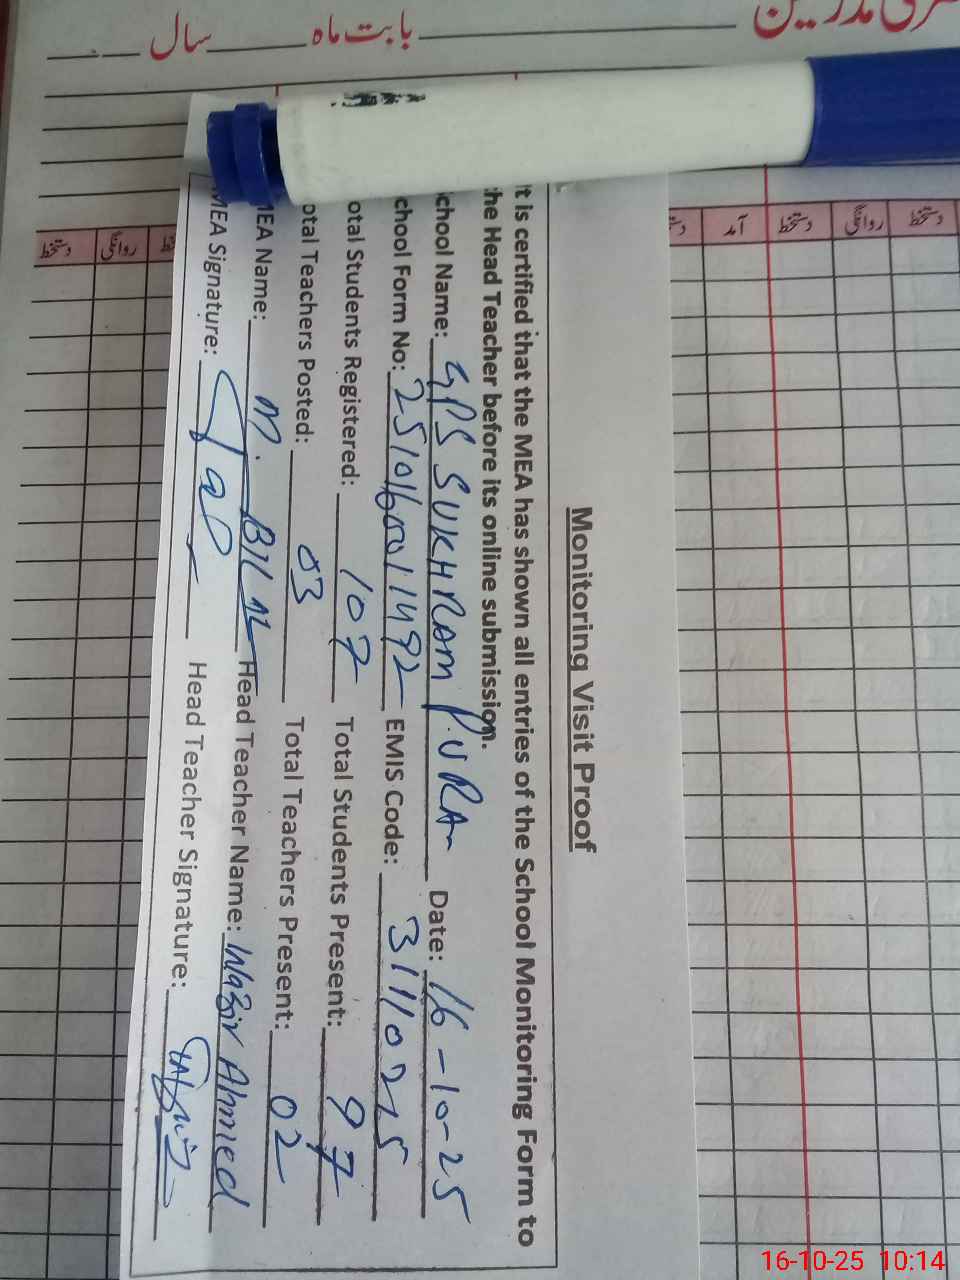 بابت ماہ سال
Monitoring Visit Proof
It is certified that the MEA has shown all entries of the School Monitoring Form to
the Head Teacher before its online submission.
School Name: GPS SUKHRAM PURA Date: 16-10-25
School Form No: EMIS Code: 31110275
Total Students Registered: 107 Total Students Present: 97
Total Teachers Posted: 03 Total Teachers Present: 02
MEA Name: M. Head Teacher Name: Wazir Ahmed
MEA Signature: Head Teacher Signature:
16-10-25 10:14